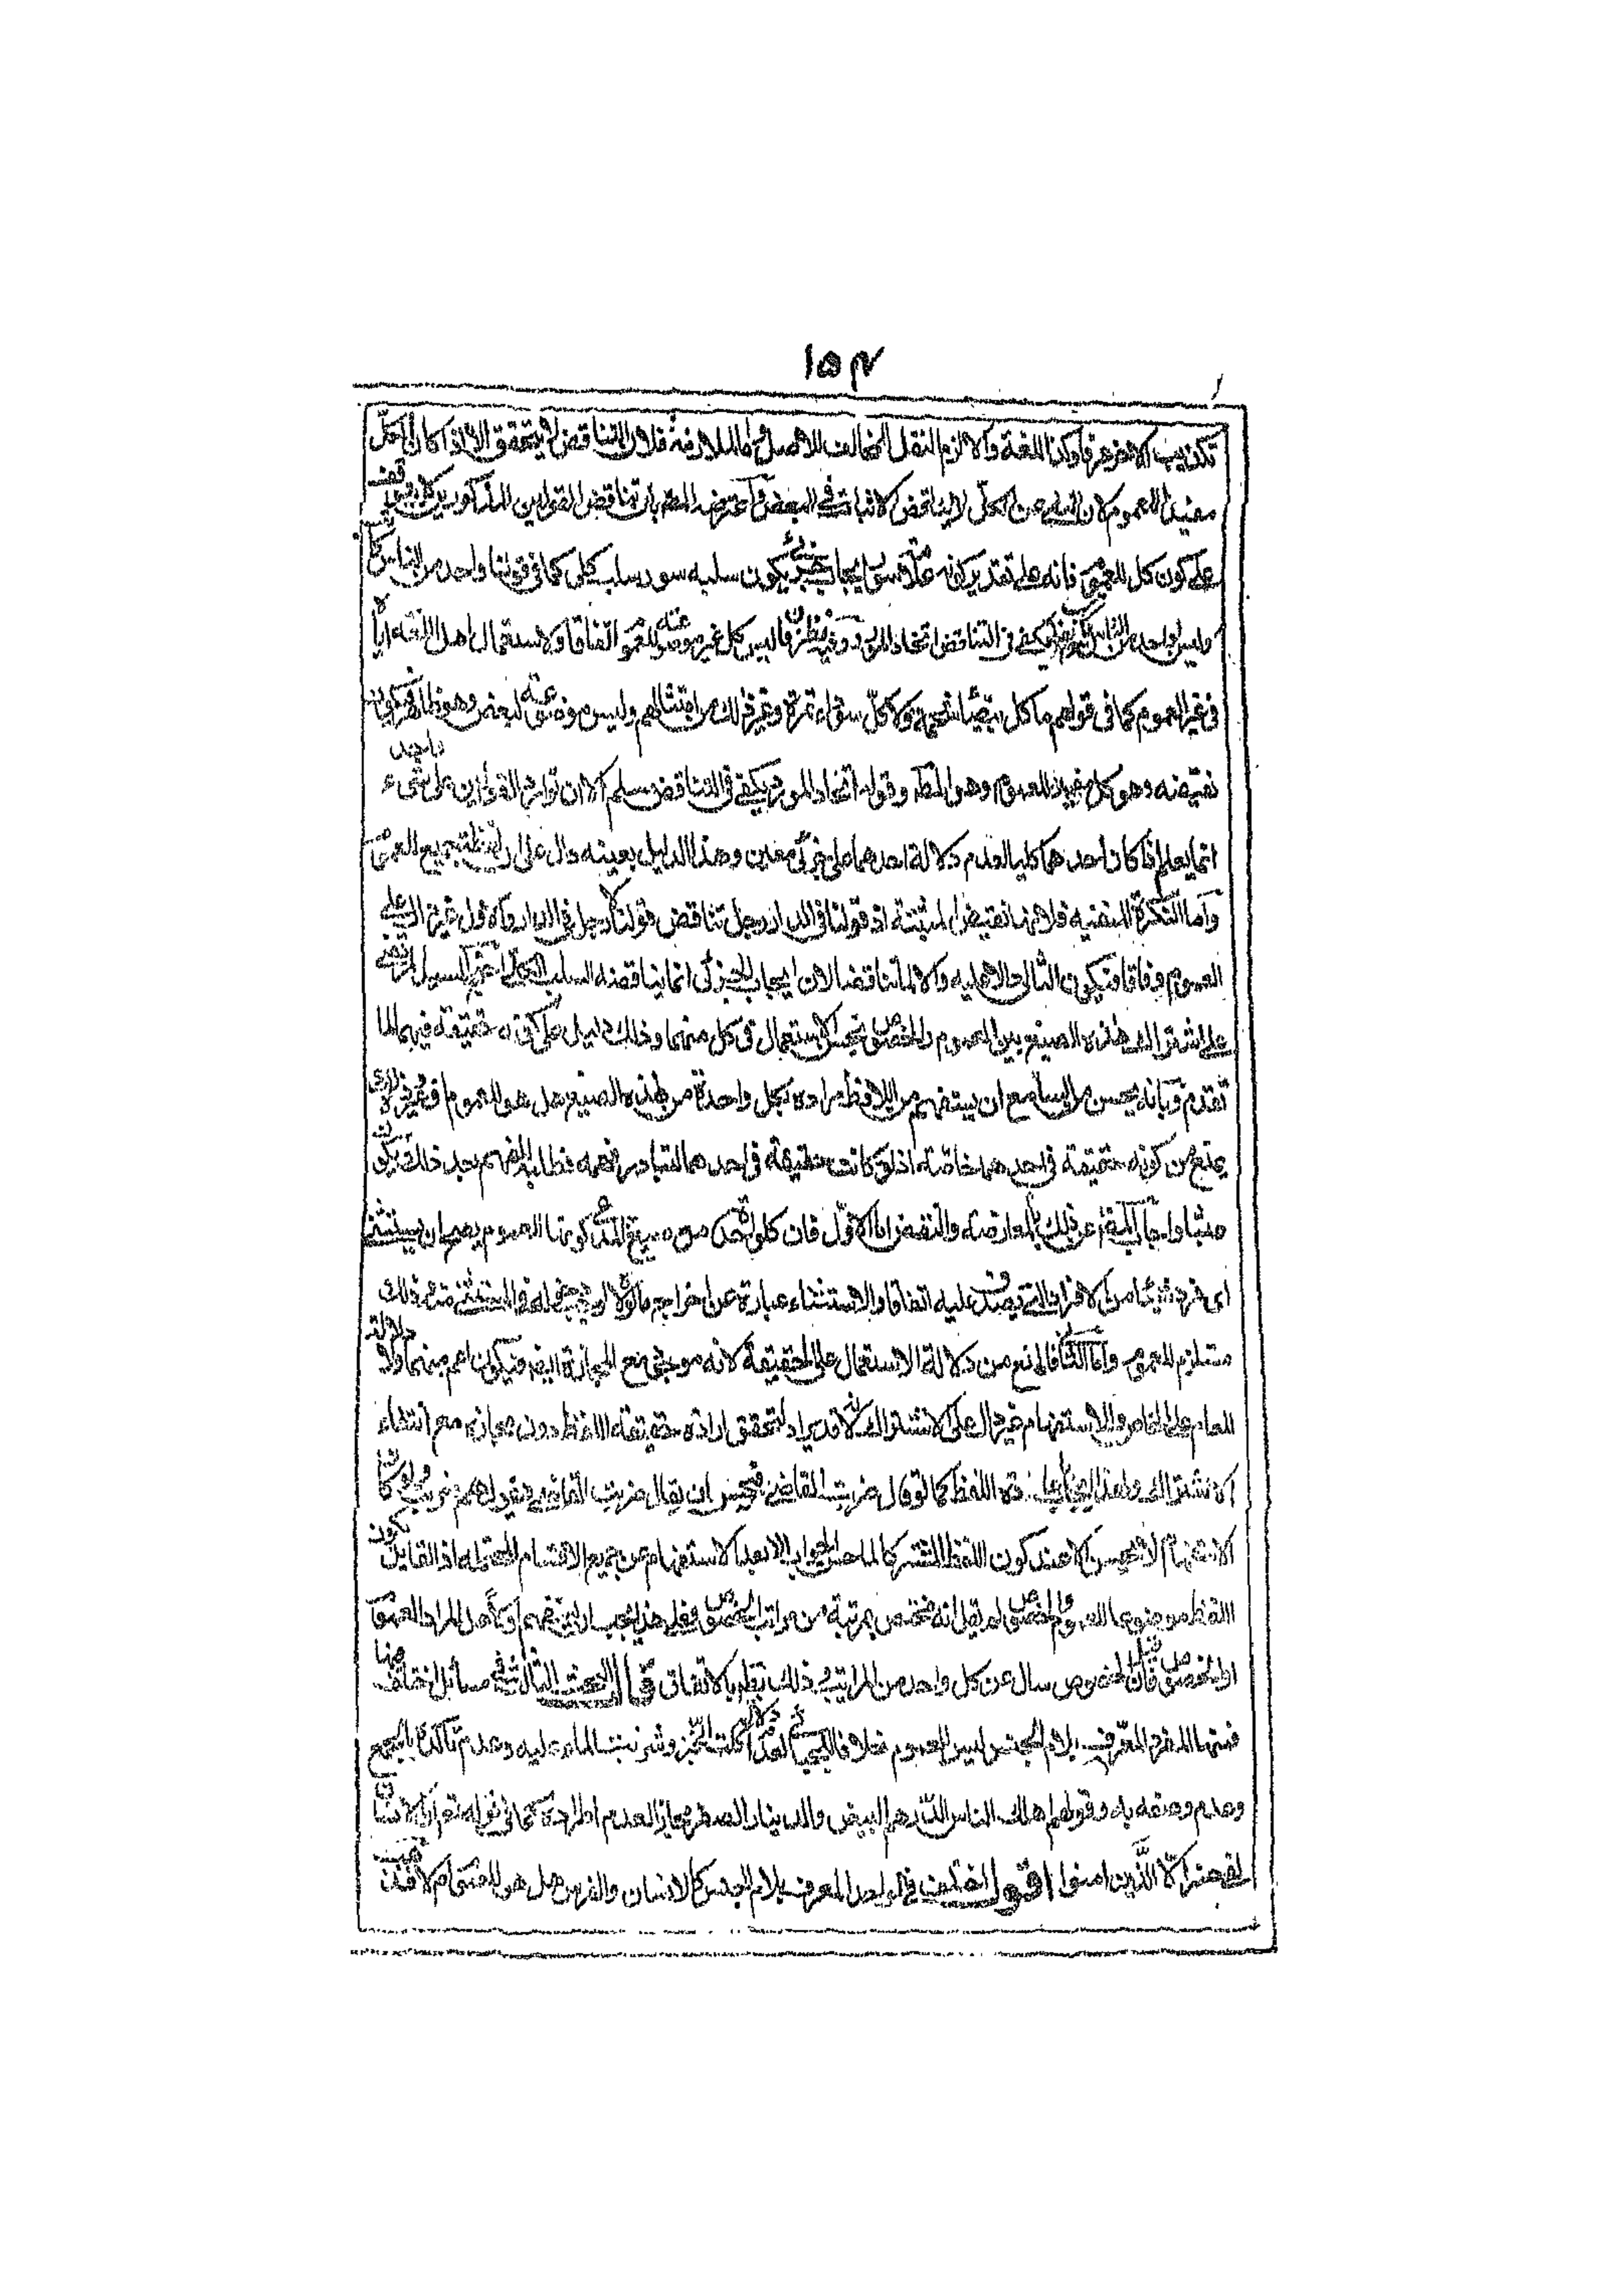 ١٥٤
تكذيب الاخر عرفا وكذا لغة والا لزم النقل المخالف للاصل واما الملازمة فلان التناقض لا يتحقق الا اذا كان الكل
مفيدا للعموم لان السلب عن الكل لا يناقض الاثبات في البعض واعترضه المصنف بان تناقض القولين المذكورين لا
على كون كل للعموم فانه على تقدير كونه سور ايجاب جزئي يكون سلبه سور سلب كلي كما في قولنا واحد من الناس
وليس واحد من الناس يكفي في التناقض اتحاد المورد وفيه نظر فان ليس كل غير موضوعة للعموم اتفاقا ولاستعمال اهل اللغة اياه
في غير العموم كما في قولهم ما كل بيضاء شحمة ولا كل سوداء تمرة وغير ذلك من امثالهم وليس موضوعة لبعض وهو ظاهر فيكون
نقيضه وهو كل مفيدا للعموم وهو المطلوب وقوله اتحاد المورد يكفي في التناقض مسلم الا ان توارد القولين على شيء واحد
انما يعلم اذا كان احدهما كليا لعدم دلالة احدهما على جزئي معين وهذا الدليل بعينه دال على ان لفظة جميع للعموم
واما النكرة المنفية فلانها نقيض المثبتة اذ قولنا في الدار رجل تناقض قولنا لا رجل في الدار والاول غير دال على
العموم وفاقا فيكون الثاني دالا عليه والا لما تناقضا لان ايجاب الجزئي انما يناقضه السلب الكلي احتج السيد المرتضى
على اشتراك هذه الصيغ بين العموم والخصوص بحسن الاستعمال في كل منهما وذلك دليل على كونه حقيقة فيهما لما
تقدم وبانه يحسن من السامع ان يستفهم من اللافظ مراده بكل واحدة من هذه الصيغ هل هو العموم او غيره
يمنع من كونه حقيقة في احدهما خاصة اذ لو كانت حقيقة في احدهما لتبادر فهمه فطلب الفهم بعد ذلك يكون
عبثا واجاب المصنف عن ذلك بالمعارضة والنقض اما الاول فان كل واحدة من صيغ المذكورة للعموم يصح ان يستثنى
اي فرد شيئا من الافراد التي يصدق عليه اتفاقا والاستثناء عبارة عن اخراج ما لولاه لوجب دخوله في المستثنى منه وذلك
مستلزم للعموم واما الثاني فالمنع من دلالة الاستعمال على الحقيقة لانه موجود مع المجاز ايضا فيكون اعم منهما ولا دلالة
للعام على الخاص والاستفهام غير دال على الاشتراك لانه قد يراد لتحقق ارادة حقيقة اللفظ دون مجازه مع انتفاء
الاشتراك ولهذا يجاب اللفظ كما لو قال ضربت القاضي فيحسن ان يقال ضربت القاضي فيقول نعم ضربته ولو كان
الاستفهام لا يحسن الا عند كون اللفظ مشتركا لما حسن الجواب الا بعد الاستفهام عن جميع الاقسام المحتملة اذ القايل بكون
اللفظ موضوعا للعموم والخصوص لم يقل انه مختص بمرتبة من مراتب الخصوص فعلى هذا يجب ان يستفهم اولا هل المراد العموم
او الخصوص فان قيل الخصوص سال عن كل واحد من المراتب وذلك بقبيح بالاتفاق قال البحث الثالث في مسائل اختلف فيها
فمنها المفرد المعرف بلام الجنس ليس للعموم خلافا للجبائي لعدم اكلت الخبز وشربت الماء عليه وعدم تاكده بالجمع
وعدم وصفه به وقولهم اهلك الناس الدرهم البيض والدينار الصفر مجاز لعدم اطراده كما في قوله تعالى ان الانسان
لفي خسر الا الذين امنوا اقول اختلف في الواحد المعرف بلام الجنس كالانسان والفرس هل هو للعموم ام لا فذهب